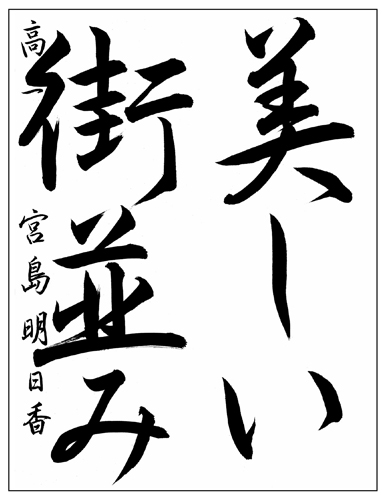 美しい
街並み
高一 宮島明日香